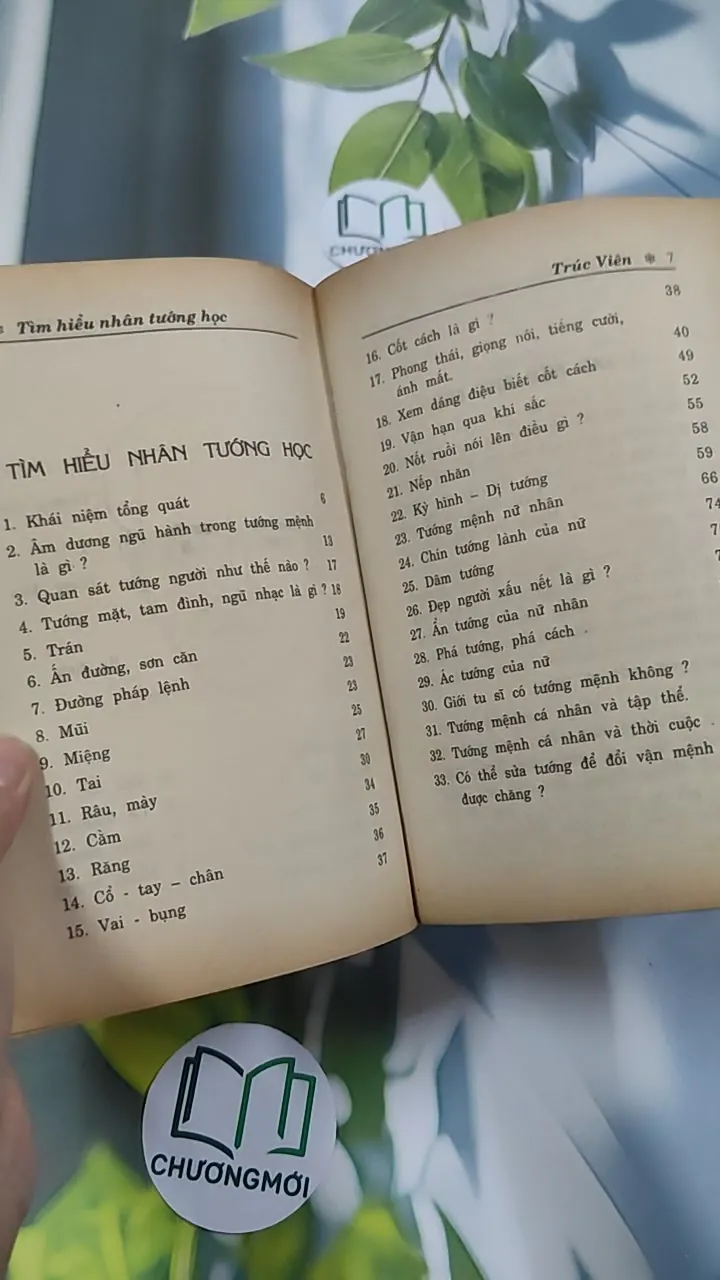 Tìm hiểu nhân tướng học
TÌM HIỂU NHÂN TƯỚNG HỌC
1. Khái niệm tổng quát 6
2. Âm dương ngũ hành trong tướng mệnh
là gì ? 13
3. Quan sát tướng người như thế nào ? 17
4. Tướng mặt, tam đình, ngũ nhạc là gì ? 18
5. Trán 19
6. Ấn đường, sơn căn 22
7. Đường pháp lệnh 23
8. Mũi 23
9. Miệng 25
10. Tai 27
11. Râu, mày 30
12. Cằm 34
13. Răng 35
14. Cổ - tay – chân 36
15. Vai - bụng 37
Trúc Viên 7
16. Cốt cách là gì ? 38
17. Phong thái, giọng nói, tiếng cười,
ánh mắt. 40
18. Xem dáng điệu biết cốt cách 49
19. Vận hạn qua khí sắc 52
20. Nốt ruồi nói lên điều gì ? 55
21. Nếp nhăn 58
22. Kỳ hình – Dị tướng 59
23. Tướng mệnh nữ nhân 66
24. Chín tướng lành của nữ 74
25. Dâm tướng
26. Đẹp người xấu nết là gì ?
27. Ẩn tướng của nữ nhân
28. Phá tướng, phá cách .
29. Ác tướng của nữ
30. Giới tu sĩ có tướng mệnh không ?
31. Tướng mệnh cá nhân và tập thể.
32. Tướng mệnh cá nhân và thời cuộc .
33. Có thể sửa tướng để đổi vận mệnh
được chăng ?
CHƯƠNGMỚI